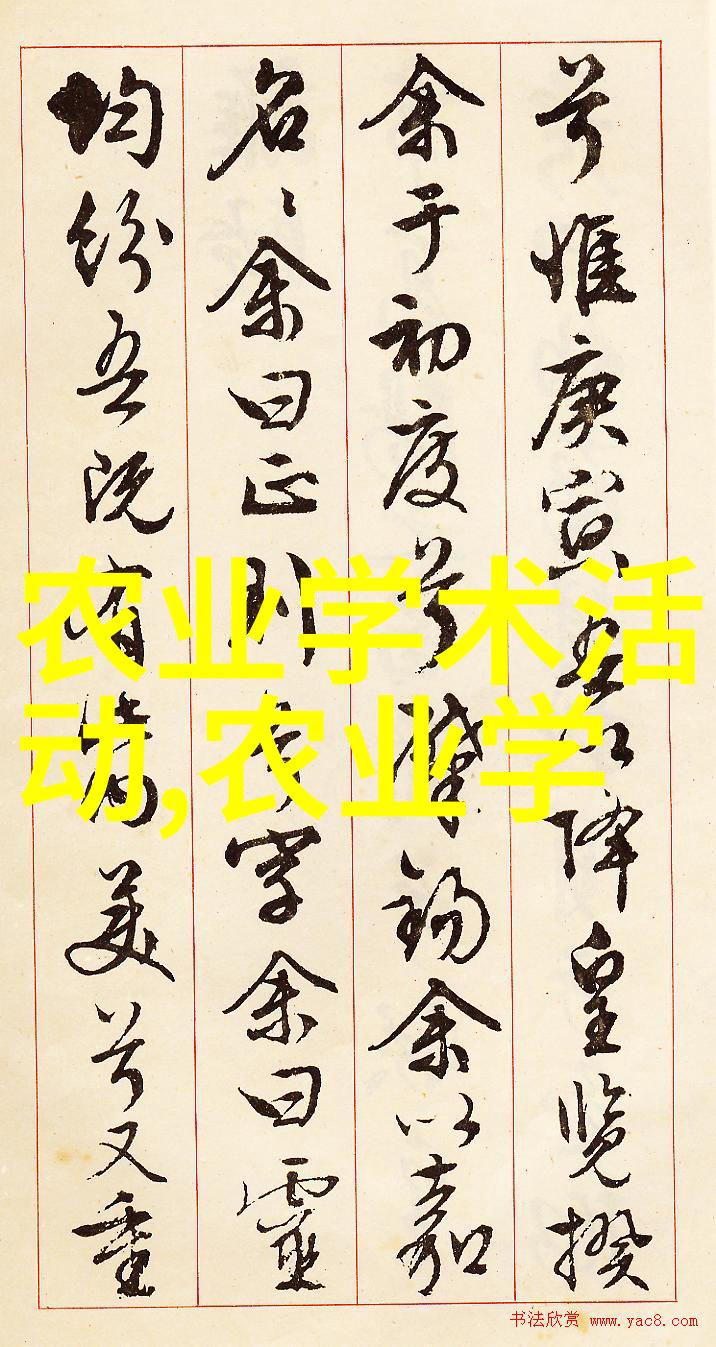 兮惟庚寅吾以降皇览揆
余于初度兮肇锡余以嘉
名〻余曰正则兮字余曰灵
均纷吾既有此内美兮又重
农业学术活
动,农业学
书法欣赏 www.yac8.com